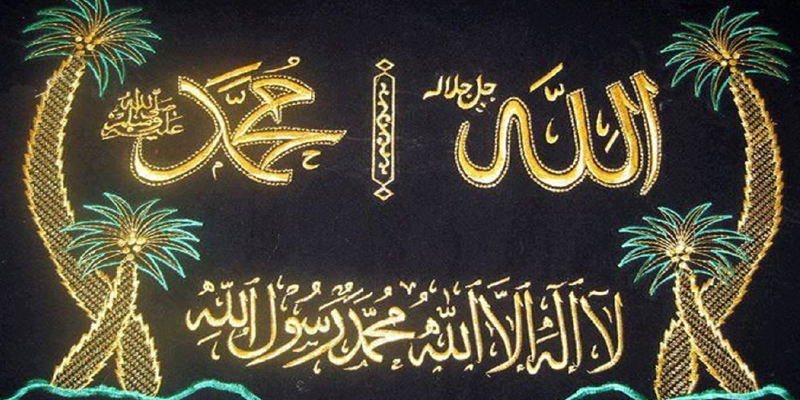 الله جل جلاله محمد صلى الله عليه وسلم
لا اله الا الله محمد رسول الله